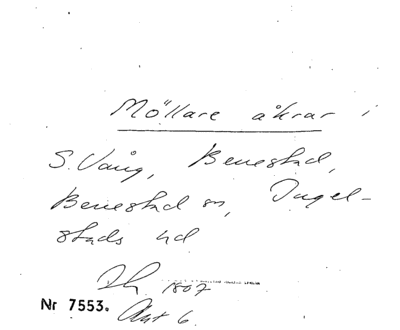 Möllare åkrar i
S. Vång, Benestad,
Benestad sn, Ingel-
stads hd
1807
Akt 6.
Nr 7553.